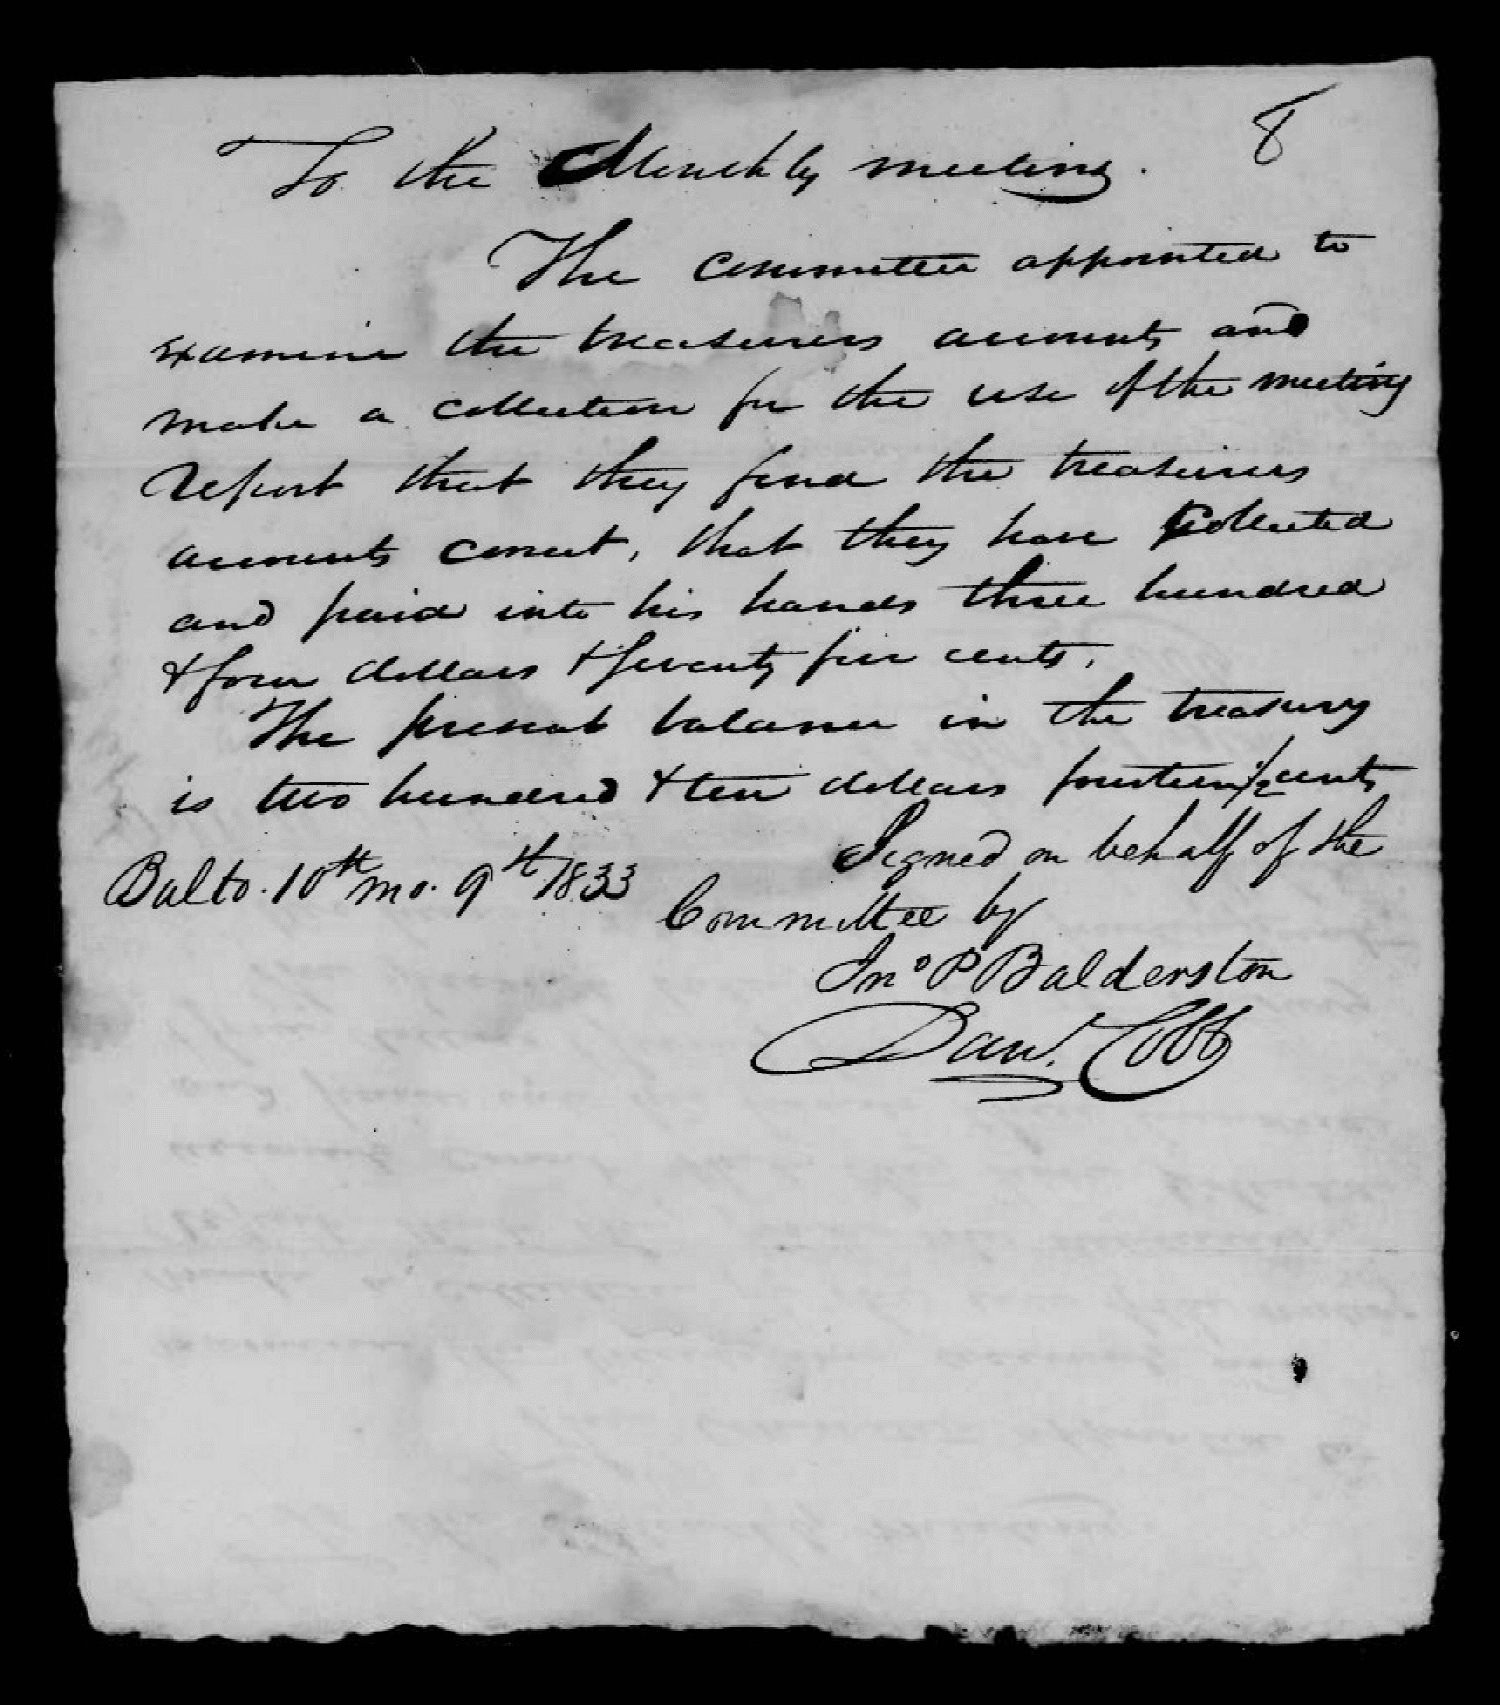 8
To the Monthly meeting.
The committee appointed to
examine the treasurers accounts and
make a collection for the use of the meeting
report that they find the treasurers
accounts correct, that they have Collected
and paid into his hands three hundred
& four dollars & seventy five cents.
The present balance in the treasury
is two hundred & ten dollars fourteen ½ cents
Signed on behalf of the
Balto. 10th mo. 9th 1833
Committee by
Jno P Balderston
Danl. Cobb